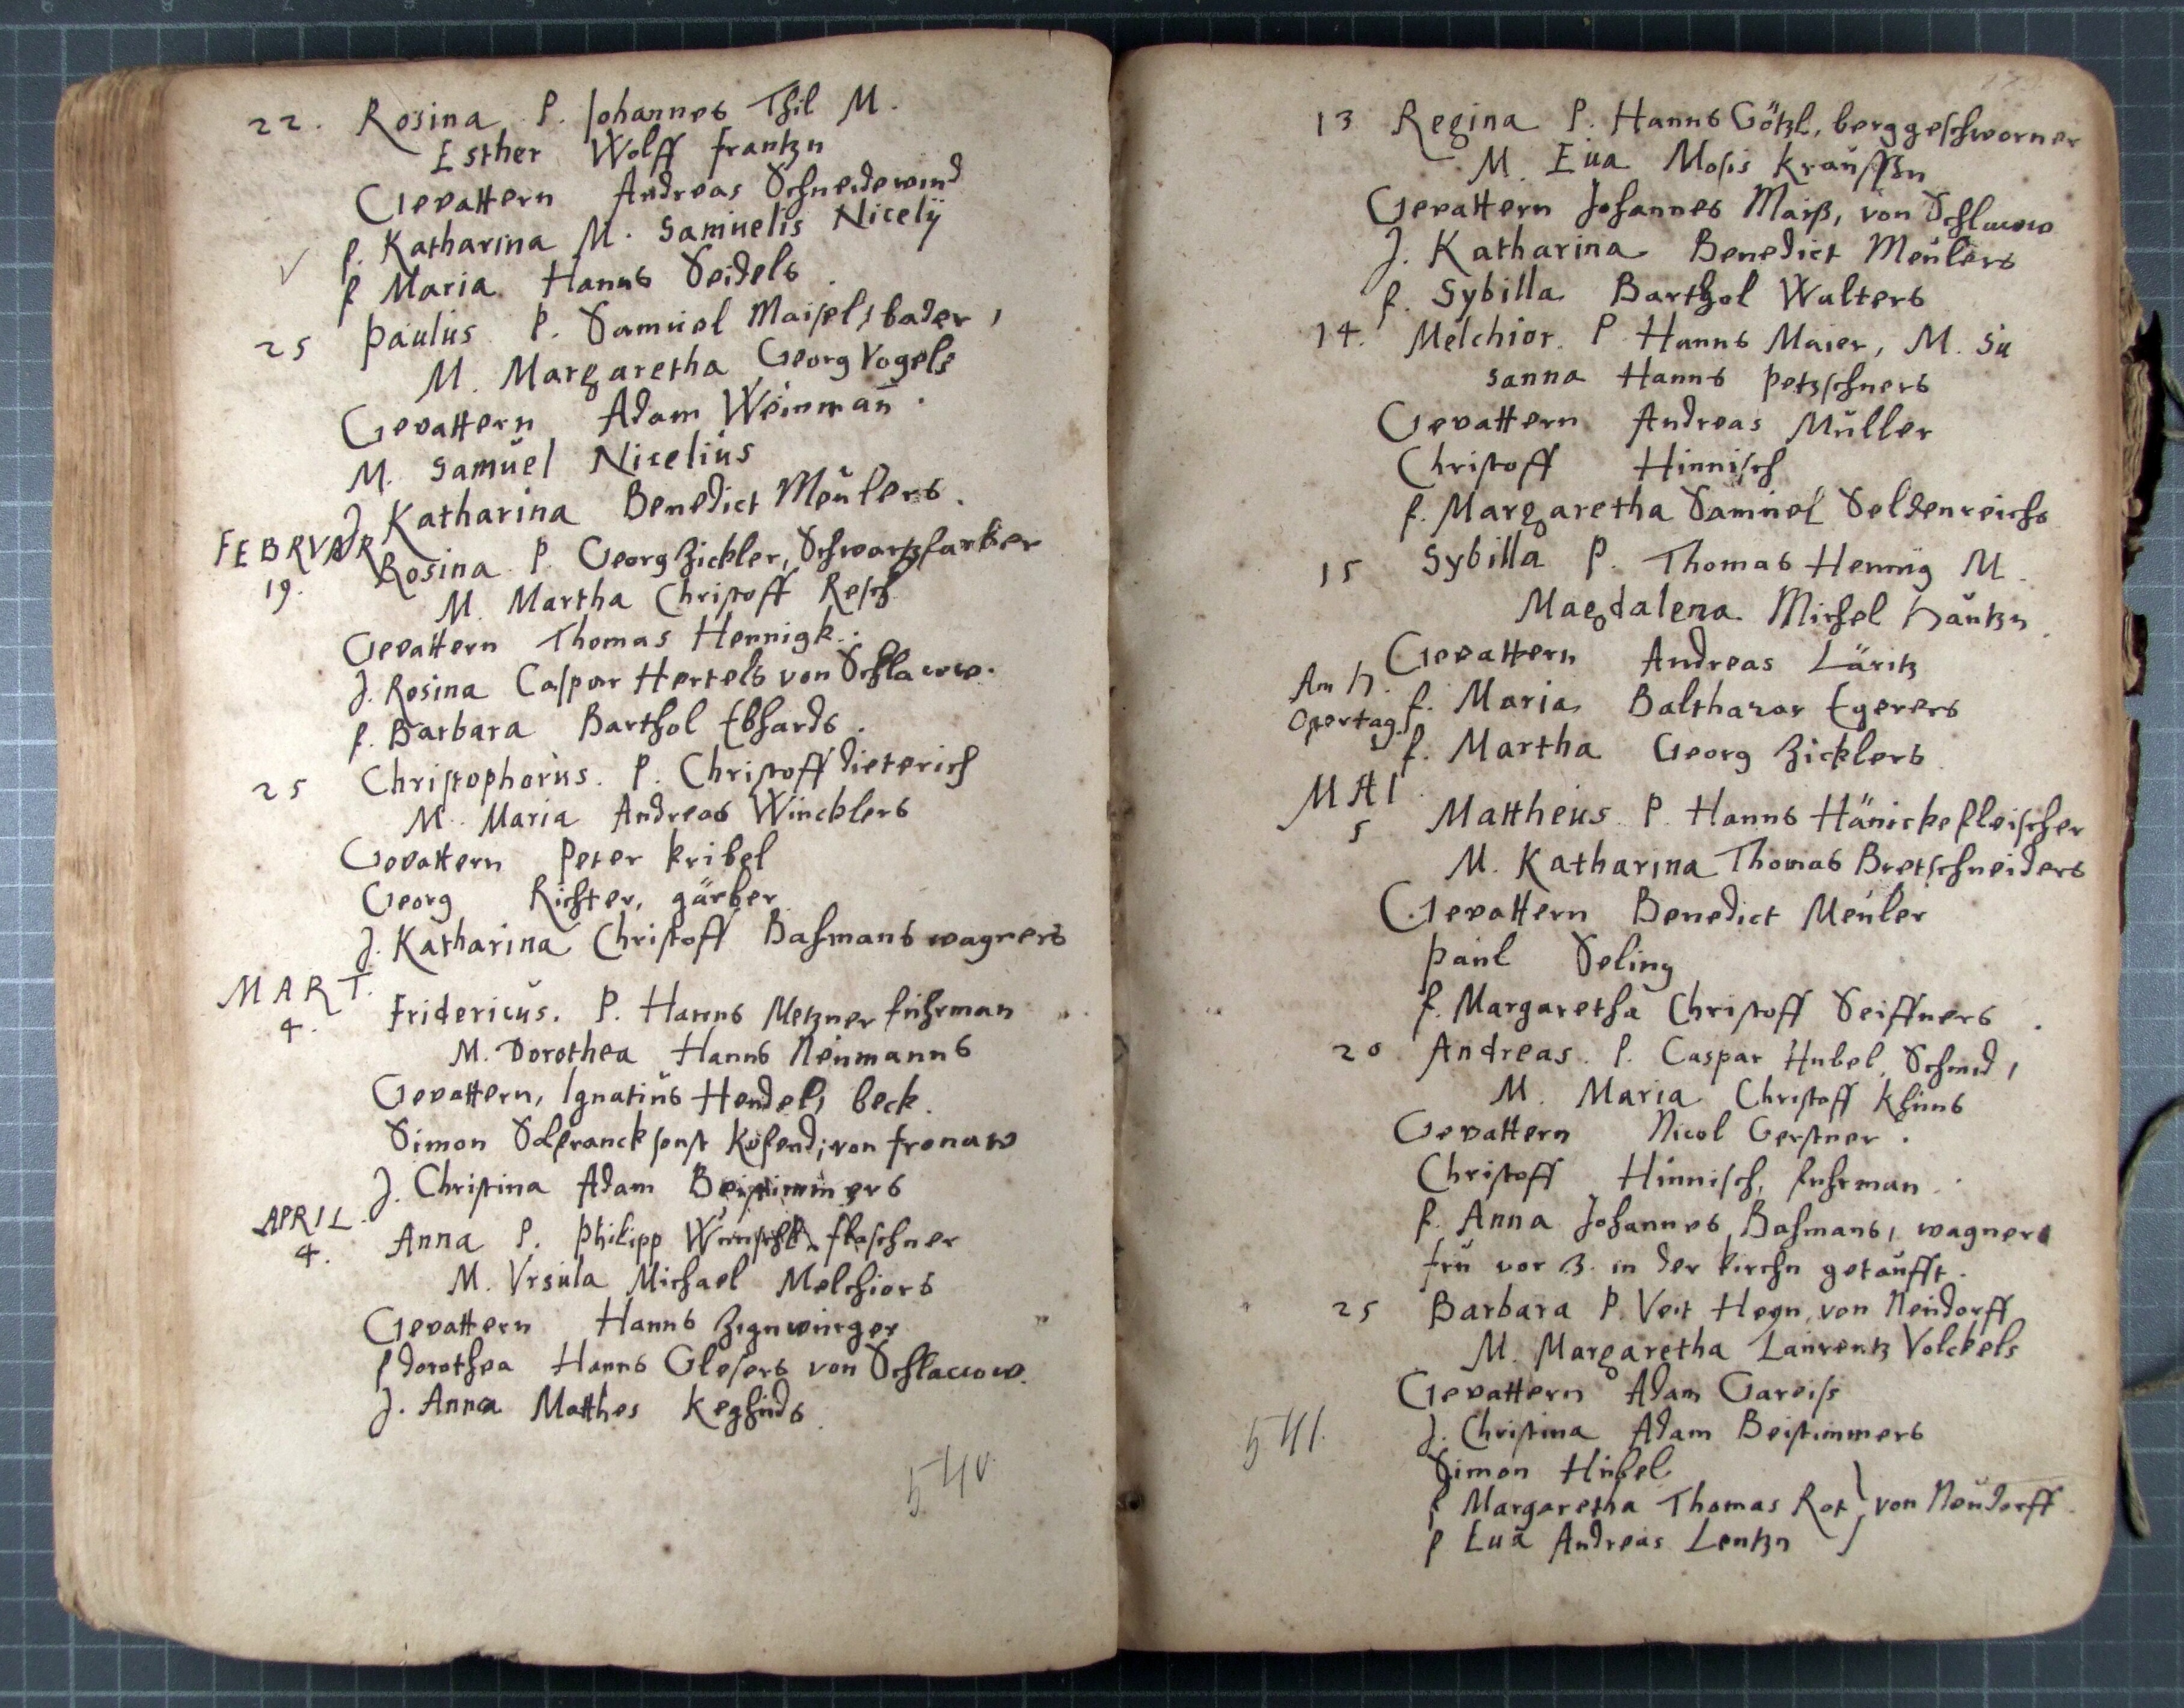 22. Rosina P. Johannes Thil M.
Esther Wolff Frantzn
Gevattern Andreas Schneidewind
f. Katharina M. Samuelis Nicelÿ
f Maria Hanns Seidels
25 Paulus P. Samuel Maisel, bader,
M. Margaretha Georg Vogels
Gevattern Adam Weinman̄.
M. Samuel Nicelius
J Katharina Benedict Meulers.
FEBRVAR
19. Rosina P. Georg Zickler, Schwartzfarber
M. Martha Christoff Resch
Gevattern Thomas Hennigk.
J. Rosina Caspar Hertels von Schlaww.
f. Barbara Barthol Ebhards.
25 Christophorus. P. Christoff Dieterich
M. Maria Andreas Wincklers
Gevattern Peter Kribel
Georg Richter, gärber
J. Katharina Christoff Basmans wagners
MART.
4. Fridericus. P. Hanns Metzner fuhrman
M. Dorothea Hanns Neumanns
Gevattern, Ignatius Hendel, beck.
Simon sonst von Fronaw
J. Christina Adam Beistimmers
APRIL.
4. Anna P. Philipp flaschner
M. Vrsula Michael Melchiors
Gevattern Hanns Zignwürger
f Dorothea Hanns Glesers von Schlacww.
J. Anna Matthes
540
13 Regina P. Hanns Götzl, berggeschworner
M. Eua Mosis Kraussn
Gevattern Johannes Maiß, von
J. Katharina Benedict Meulers
f. Sybilla Barthol Walters
14. Melchior. P. Hanns Maier, M. Su
sanna Hanns Petzschners
Gevattern Andreas Müller
Christoff Hinnisch
f. Margaretha Samuel Seldenreichs
15 Sybilla P. Thomas Hennig M.
Magdalena Michel Häutzn.
Gevattern Andreas Läritz
Am H.
Ostertag. f. Maria Balthazar Egerers
f. Martha Georg Zicklers
MAI.
5 Mattheus P. Hanns Hänicke fleischer
M. Katharina Thomas Bretschneiders
Gevattern Benedict Meuler
Paul Seling
f. Margaretha Christoff Seiffners.
20 Andreas. P. Caspar Hubel, Schmid,
M. Maria Christoff Khuns
Gevattern Nicol Gerstner.
Christoff Hinnisch, fuhrman.
f. Anna Johannes Basmans, wagners
fru vor 3. in der kirchn getaufft.
25 Barbara P. Veit Hegn, von Neudorff
M. Margaretha Laurentz Volckels
Gevattern Adam Gareiss
J. Christina Adam Beistimmers
Simon Hubel
f Margaretha Thomas Rot } von Neudorff.
f Eua Andreas Lentzn
541.